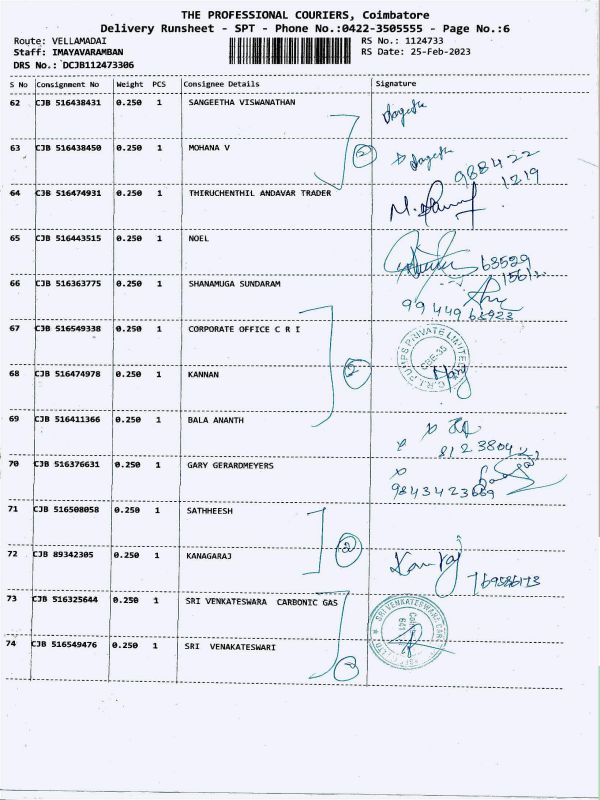 THE PROFESSIONAL COURIERS, Coimbatore
Delivery Runsheet - SPT - Phone No.:0422-3505555 - Page No.:6
Route: VELLAMADAI RS No.: 1124733
Staff: IMAYAVARAMBAN RS Date: 25-Feb-2023
DRS No.: DCJB112473306
S No Consignment No Weight PCS Consignee Details Signature
62 CJB 516438431 0.250 1 SANGEETHA VISWANATHAN
63 CJB 516438450 0.250 1 MOHANA V
988422
1219
64 CJB 516474931 0.250 1 THIRUCHENTHIL ANDAVAR TRADER
65 CJB 516443515 0.250 1 NOEL
63529
66 CJB 516363775 0.250 1 SHANAMUGA SUNDARAM
67 CJB 516549338 0.250 1 CORPORATE OFFICE C R I
C.R.I. PUMPS PRIVATE LIMITED
CBE-35
68 CJB 516474978 0.250 1 KANNAN
2
69 CJB 516411366 0.250 1 BALA ANANTH
70 CJB 516376631 0.250 1 GARY GERARDMEYERS
71 CJB 516508058 0.250 1 SATHHEESH
2
72 CJB 89342305 0.250 1 KANAGARAJ
73 CJB 516325644 0.250 1 SRI VENKATESWARA CARBONIC GAS
74 CJB 516549476 0.250 1 SRI VENAKATESWARI